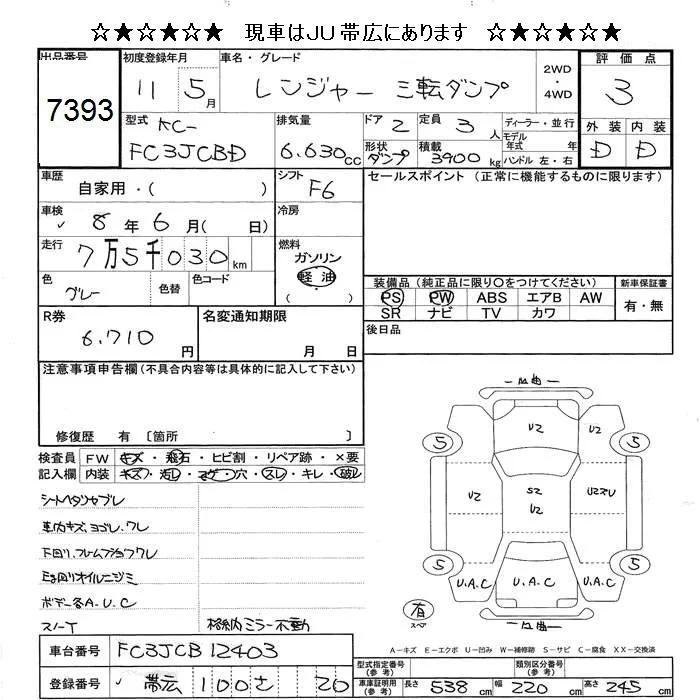 ☆★☆★☆★ 現車はJU帯広にあります ☆★☆★☆★
出品番号 初度登録年月 車名・グレード 2WD ・ 4WD 評価点
7393 11 5月 レンジャー 三転ダンプ 3
型式 KC- FC3JCBD 排気量 6.630cc ドア 2 定員 3人 ディーラー・並行 外装 内装
形状 ダンプ 積載 3900kg モデル年式 年式 ハンドル 左・右 D D
車歴 自家用・( ) シフト F6 セールスポイント (正常に機能するものに限ります)
車検 8年6月( 日) 冷房
走行 7万5千030km 燃料 ガソリン 軽油 ( )
色 グレー 色替 色コード
装備品 (純正品に限り〇をつけてください) 新車保証書
PS PW ABS エアB AW 有・無
SR ナビ TV カワ
R券 6.710円 名変通知期限 月 日 後日品
注意事項申告欄 (不具合内容等は具体的に記入して下さい)
修復歴 有 〔箇所 〕
検査員 FW キズ・飛石・ヒビ割・リペア跡・×要
記入欄 内装 キズ・汚レ・コゲ・穴・スレ・キレ・破レ
シートヘタリヤブレ
車内キズ、ヨゴレ、ワレ
下回り、フレームサビワレ
E廻りオイルニジミ
ボデー各A.U.C
スノーT 格納ミラー不動
曲
U2
5 5
U2 S2 U2
U2
5 5
U.A.C U.A.C U.A.C
有 スペア 曲
A－キズ E－エクボ U－凹み W－補修跡 S－サビ C－腐食 XX－交換済
車台番号 FC3JCB 12403
登録番号 帯広 100 さ 20
型式指定番号 (参考) 類別区分番号 (参考)
車庫証明用 (参考) 長さ 538cm 幅 220cm 高さ 245cm